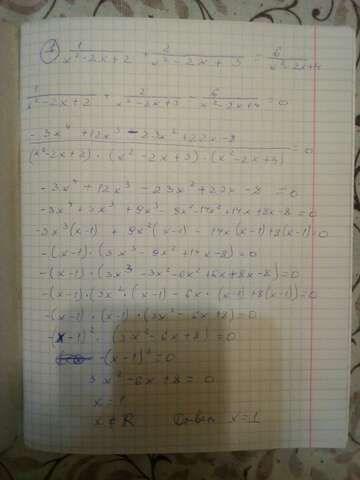 ① 1/(x²-2x+2) + 2/(x²-2x+3) = 6/(x²-2x+4)
1/(x²-2x+2) + 2/(x²-2x+3) - 6/(x²-2x+4) = 0
(-3x⁴+12x³-23x²+22x-8)/((x²-2x+2)·(x²-2x+3)·(x²-2x+4)) = 0
-3x⁴+12x³-23x²+22x-8 = 0
-3x⁴+3x³+9x³-9x²-14x²+14x+8x-8=0
-3x³(x-1)+9x²(x-1)-14x(x-1)+8(x-1)=0
-(x-1)·(3x³-9x²+14x-8)=0
-(x-1)·(3x³-3x²-6x²+6x+8x-8)=0
-(x-1)·(3x²·(x-1)-6x·(x-1)+8(x-1))=0
-(x-1)·(x-1)·(3x²-6x+8)=0
-(x-1)²·(3x²-6x+8)=0
-(x-1)²=0
3x²-6x+8=0
x=1
x∉R Ответ x=1